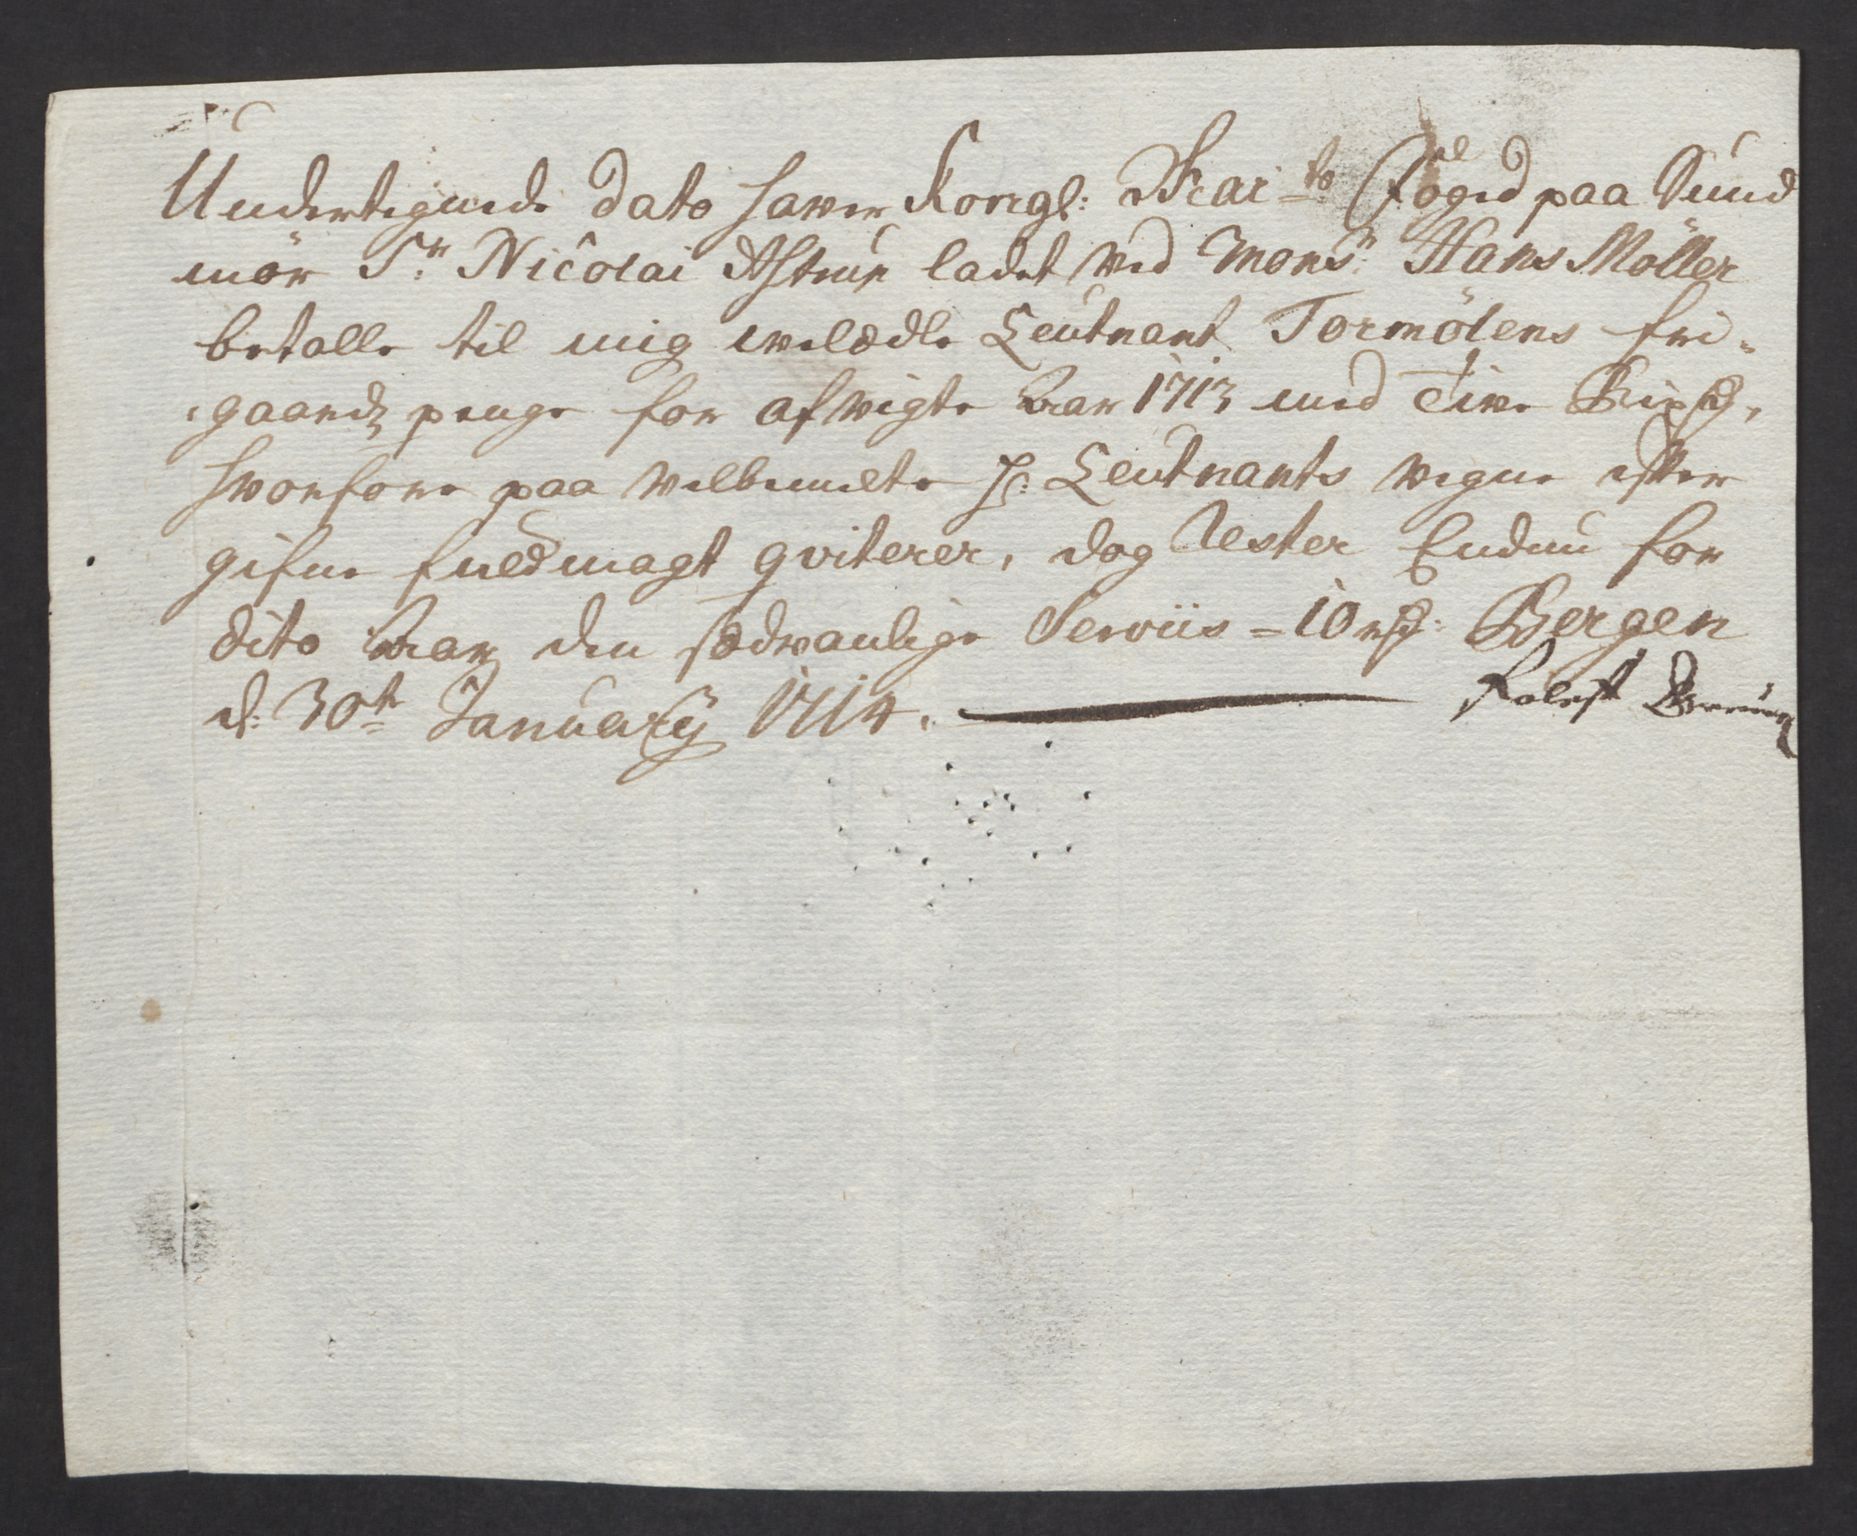 Undertegnede dato hawer Kongl: Mai:ts Foged paa Sund
mör Sr: Nicolai Astrup ladet ved Monsr: Hans Möller
betalle til mig welædle Leutnant Tormölens fri-
gaards penge for afvigte Aar 1713 med Tive Rixd,
hvorfore paa velbemelte Hr: Leutnants vegne efter
gifne fuldmagt qviterer, dog Rester Endnu for
dito Aar den sædvanlige Serviis - 10 rd: Bergen
d: 30te January 1714.